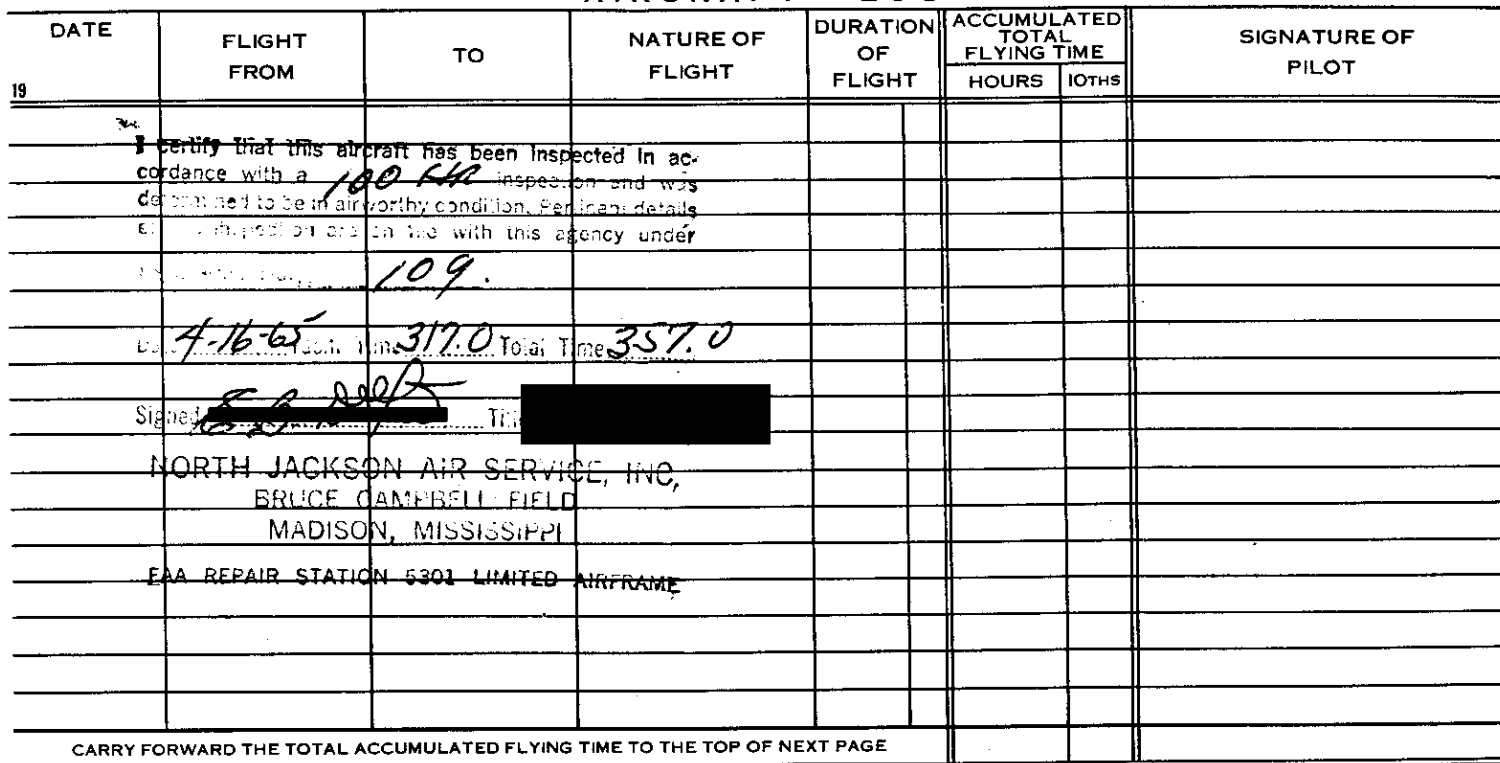 DATE
FLIGHT FROM
TO
NATURE OF FLIGHT
DURATION OF FLIGHT
ACCUMULATED TOTAL FLYING TIME
HOURS
10THS
SIGNATURE OF PILOT
19
I certify that this aircraft has been inspected in ac-
cordance with a 100 HR inspection and was
determined to be in airworthy condition. Pertinent details
inspection are on file with this agency under
109.
Date 4-16-65 Tach. Time 317.0 Total Time 357.0
Signed
NORTH JACKSON AIR SERVICE, INC,
BRUCE CAMPBELL FIELD
MADISON, MISSISSIPPI
FAA REPAIR STATION 5301 LIMITED AIRFRAME
CARRY FORWARD THE TOTAL ACCUMULATED FLYING TIME TO THE TOP OF NEXT PAGE